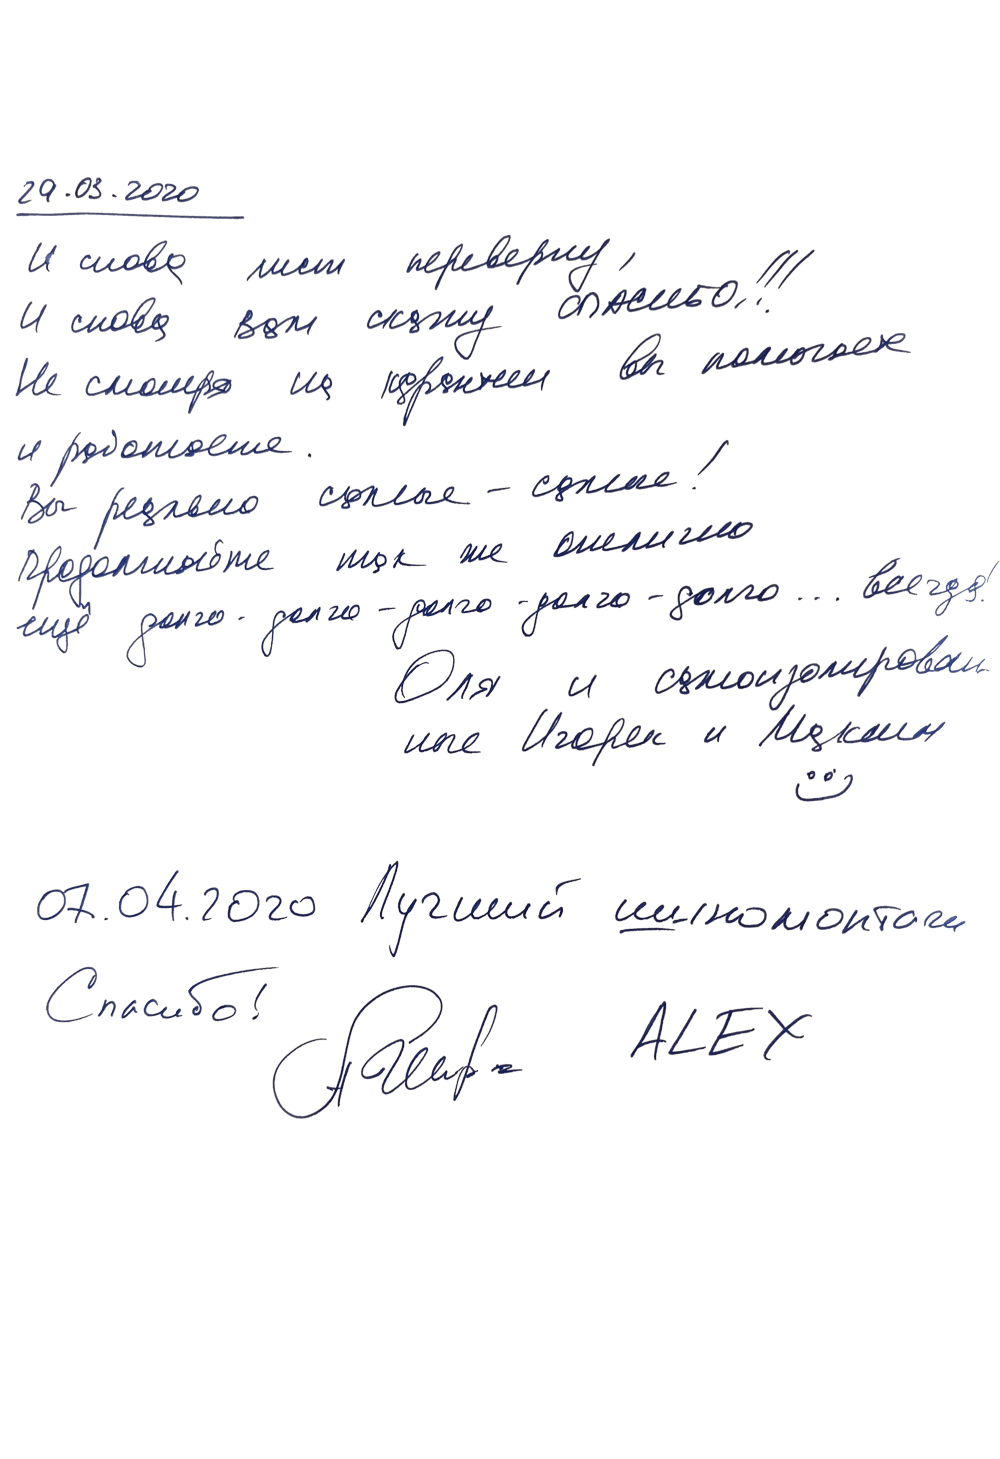 29.03.2020
И снова лист переверну,
И снова вам скажу СПАСИБО!!!
Не смотря на карантин вы помогаете
и работаете.
Вы реально самые - самые!
Продолжайте так же отлично
ещё долго - долго - долго - долго - долго... всегда!
Оля и самоизолирован
ные Игорек и Максим
07.04.2020 Лучший шиномонтаж
Спасибо!
ALEX